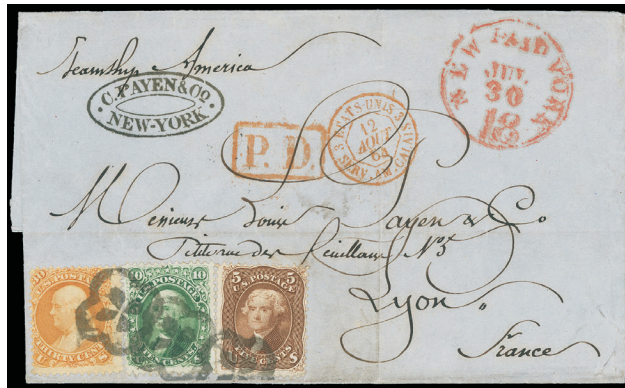 Steamship America
C. PAYEN & Co.
NEW-YORK
P.D.
3 ETATS-UNIS 3
12
AOUT
64
SERV. AM. CALAIS
NEW PAID YORK
JUL
30
18
Messieurs Louis Payen & Co
Petite rue des Feuillans No 5
Lyon
France
30
U.S. POSTAGE
THIRTY CENTS
U S
10 10
U.S. POSTAGE
TEN CENTS
5 5
U.S. POSTAGE
CENTS
S